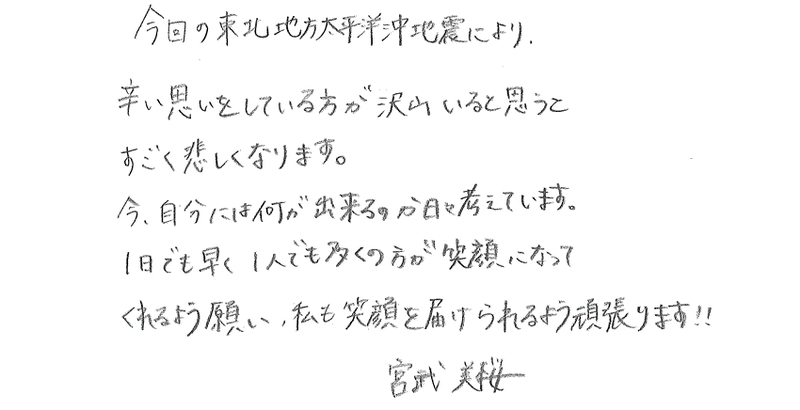 今回の東北地方太平洋沖地震により、
辛い思いをしている方が沢山いると思うと
すごく悲しくなります。
今、自分には何が出来るのか日々考えています。
1日でも早く1人でも多くの方が笑顔になって
くれるよう願い、私も笑顔を届けられるよう頑張ります!!
宮武美桜